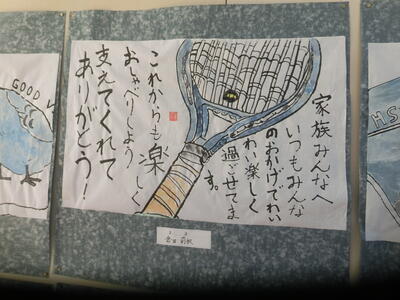 家族みんなへ
いつもみんな
のおかげでわい
わい楽しく
過ごせてま
す。
これからも楽しく
おしゃべりしよう
支えてくれて
ありがとう！
GOOD